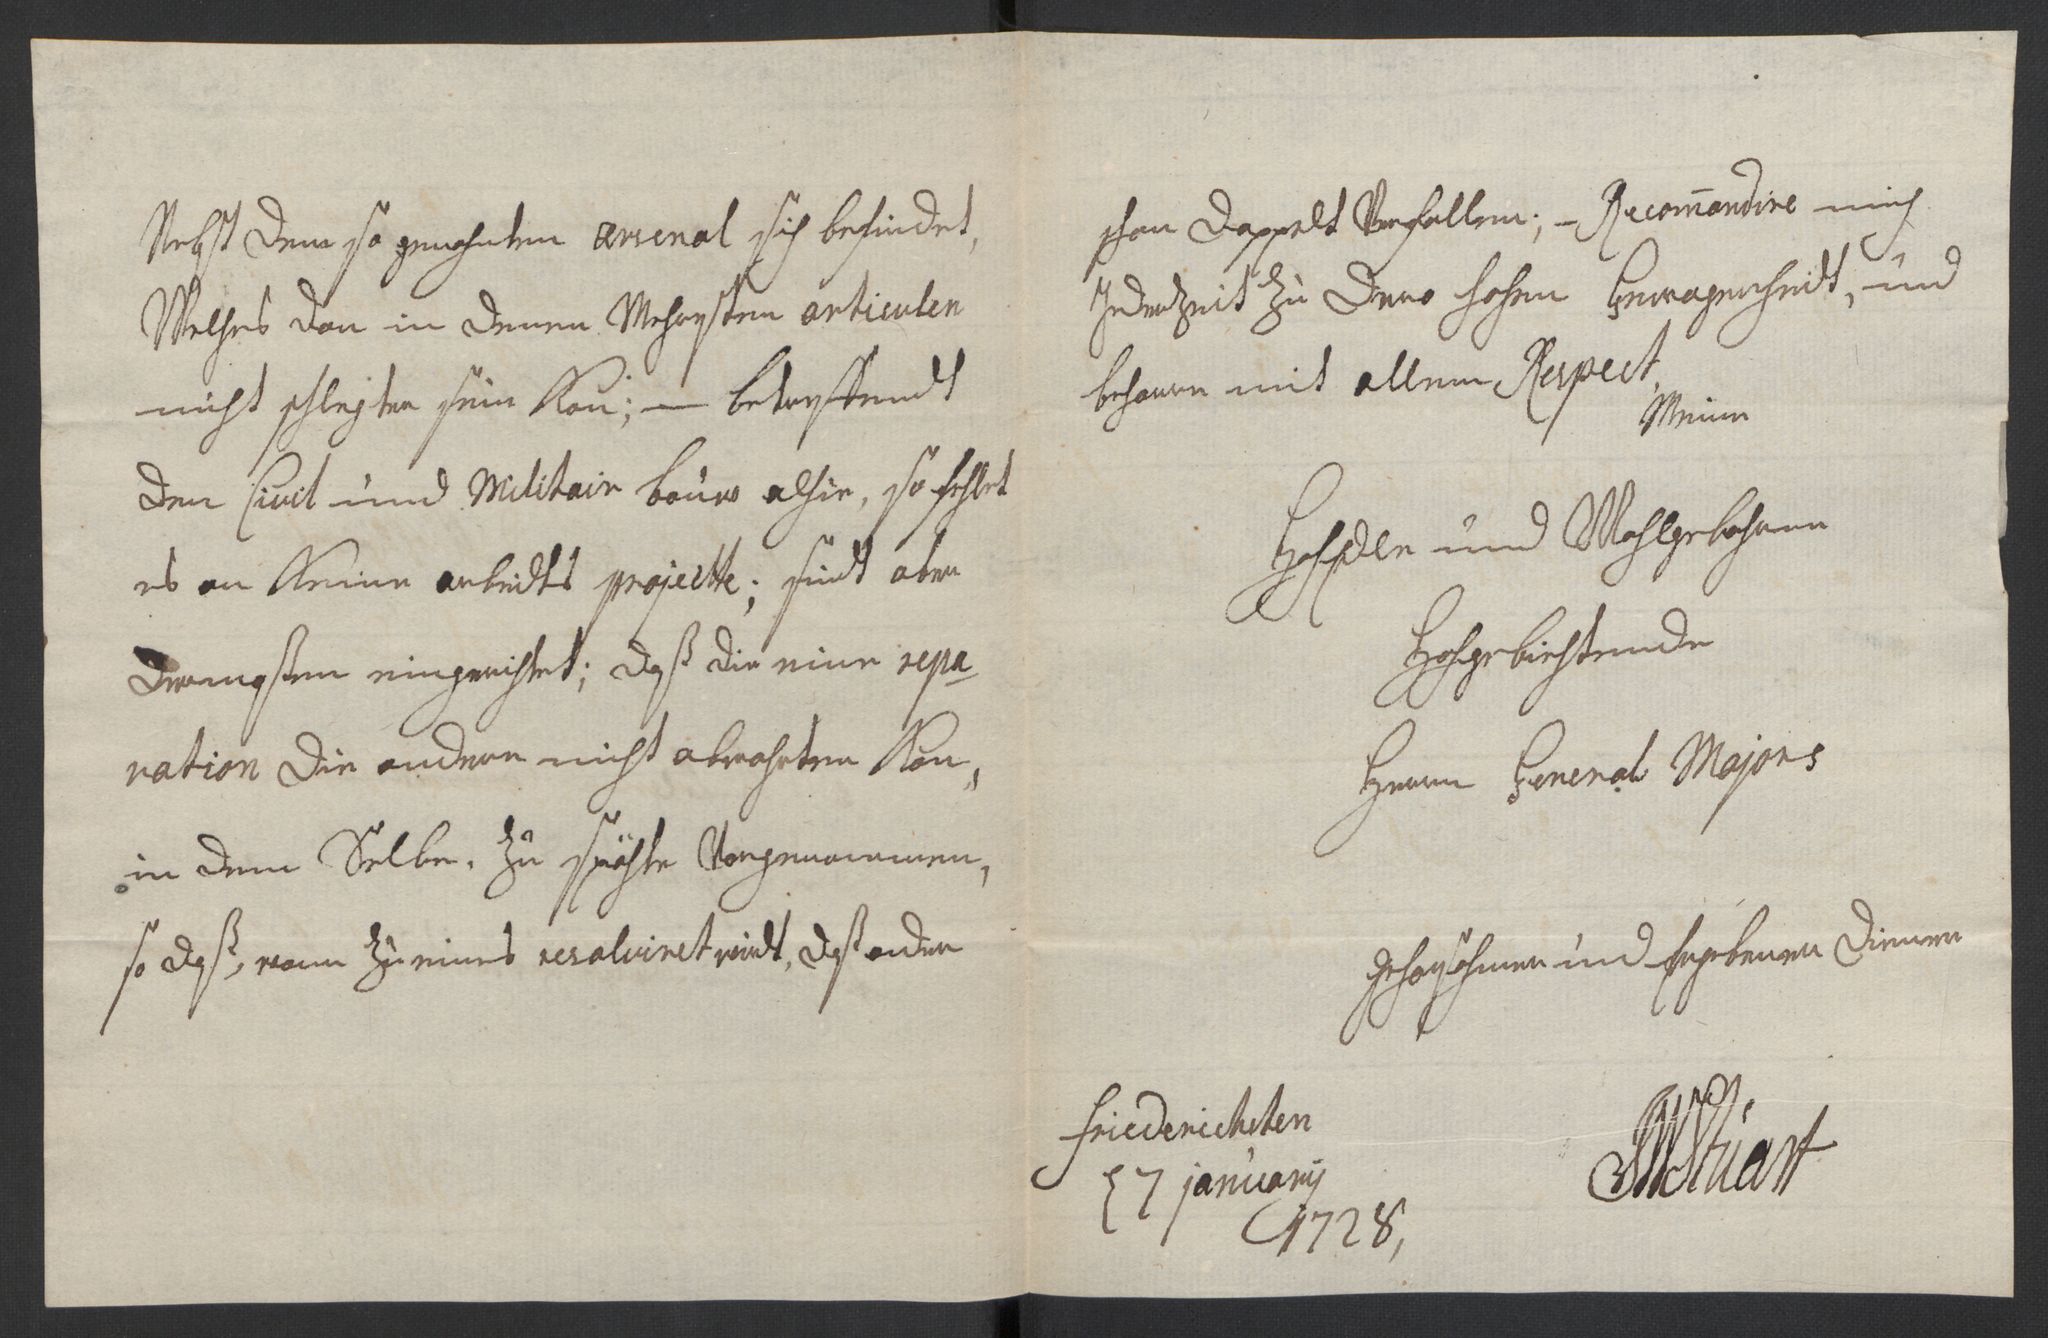 Nebst dem so genahnten arsenal sich befindet,
Welches dan in denen Mehrsten articulen
nicht schlegter sein Kan; — betreffendt
den Civil und Militair bauw alhie, so fehlet
es an Keine arbeidts projectte; sindt aber
dermaßen eingerichtet; daß die eine repa-
ration die andere nicht abwahrten Kan,
in dem Selbe, zu späthe Vorgenommen,
so daß, wann zu eines resolviret wirdt, daß ander
schon doppelt Verfallen; – Recom̄andire mich
Jederzeit zu Dero hohen Gewogenheidt, und
beharre mit allem Respect,
Meine
HochEdle und Wohlgebohrne
Hochgebiehtende
Herrn General Majors
gehorsahmer und Ergebener Diener
Friederichsten
17 january
1728,
Stuart